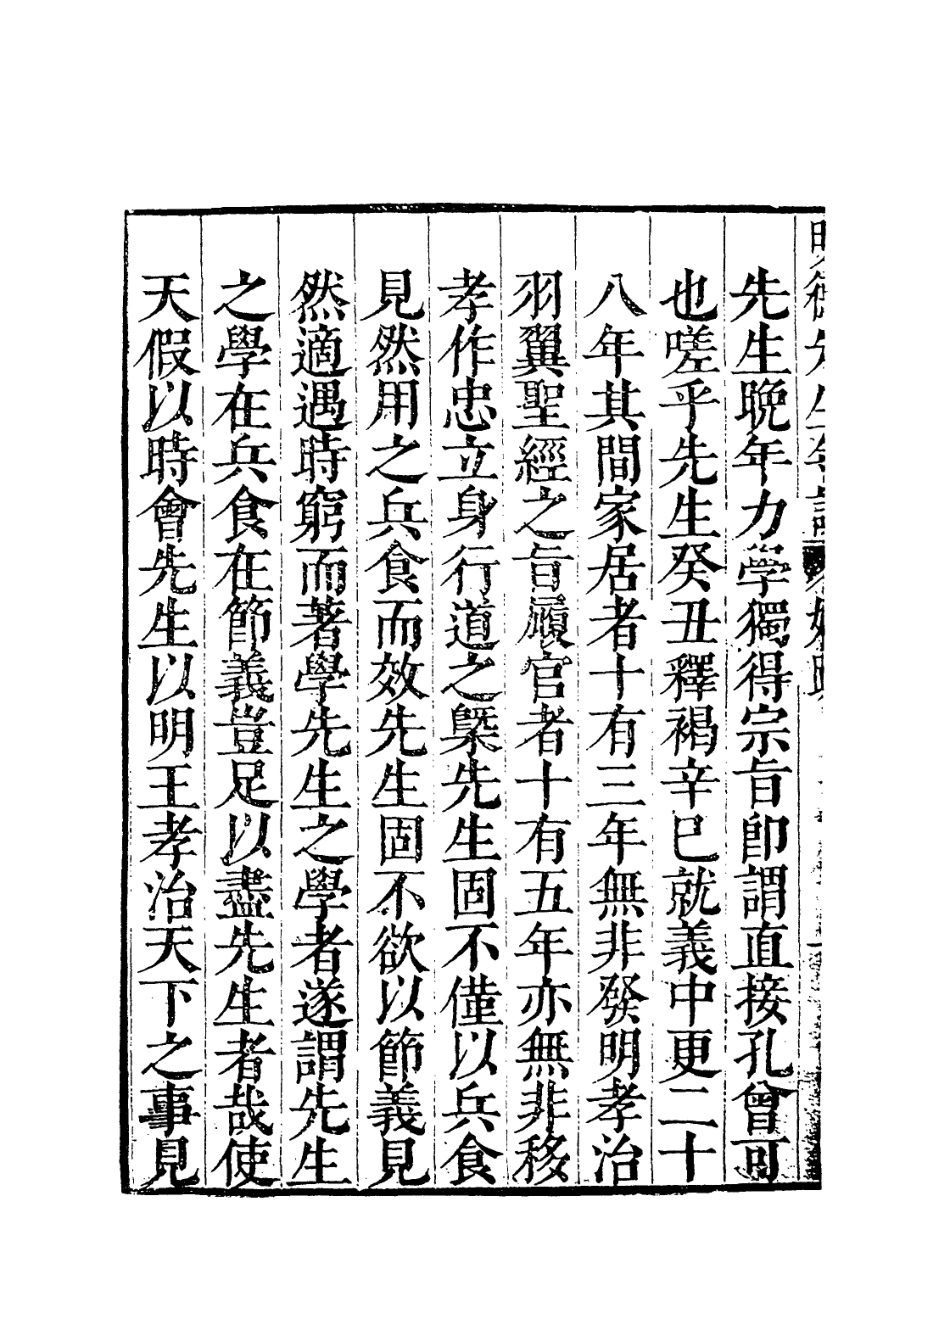 先生晚年力學獨得宗旨卽謂直接孔曾可
也嗟乎先生癸丑釋褐辛巳就義中更二十
八年其間家居者十有三年無非發明孝治
羽翼聖經之旨履官者十有五年亦無非移
孝作忠立身行道之槩先生固不僅以兵食
見然用之兵食而效先生固不欲以節義見
然適遇時窮而著學先生之學者遂謂先生
之學在兵食在節義豈足以盡先生者哉使
天假以時會先生以明王孝治天下之事見